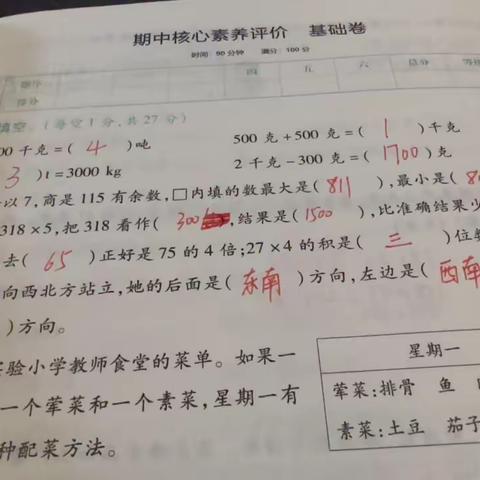 期中核心素养评价 基础卷
时间:90分钟 满分:100分
题序 四 五 六 总分 等级
得分
填空。(每空1分,共27分)
00千克=( 4 )吨 500克+500克=( 1 )千克
3 )t=3000 kg 2千克-300克=( 1700 )克
以7,商是115有余数,□内填的数最大是( 811 ),最小是( 80
318×5,把318看作( 300 ),结果是( 1500 ),比准确结果少
去( 65 )正好是75的4倍;27×4的积是( 三 )位数
向西北方站立,她的后面是( 东南 )方向,左边是( 西南
)方向。
验小学教师食堂的菜单。如果一
一个荤菜和一个素菜,星期一有
种配菜方法。
星期一
荤菜:排骨 鱼
素菜:土豆 茄子